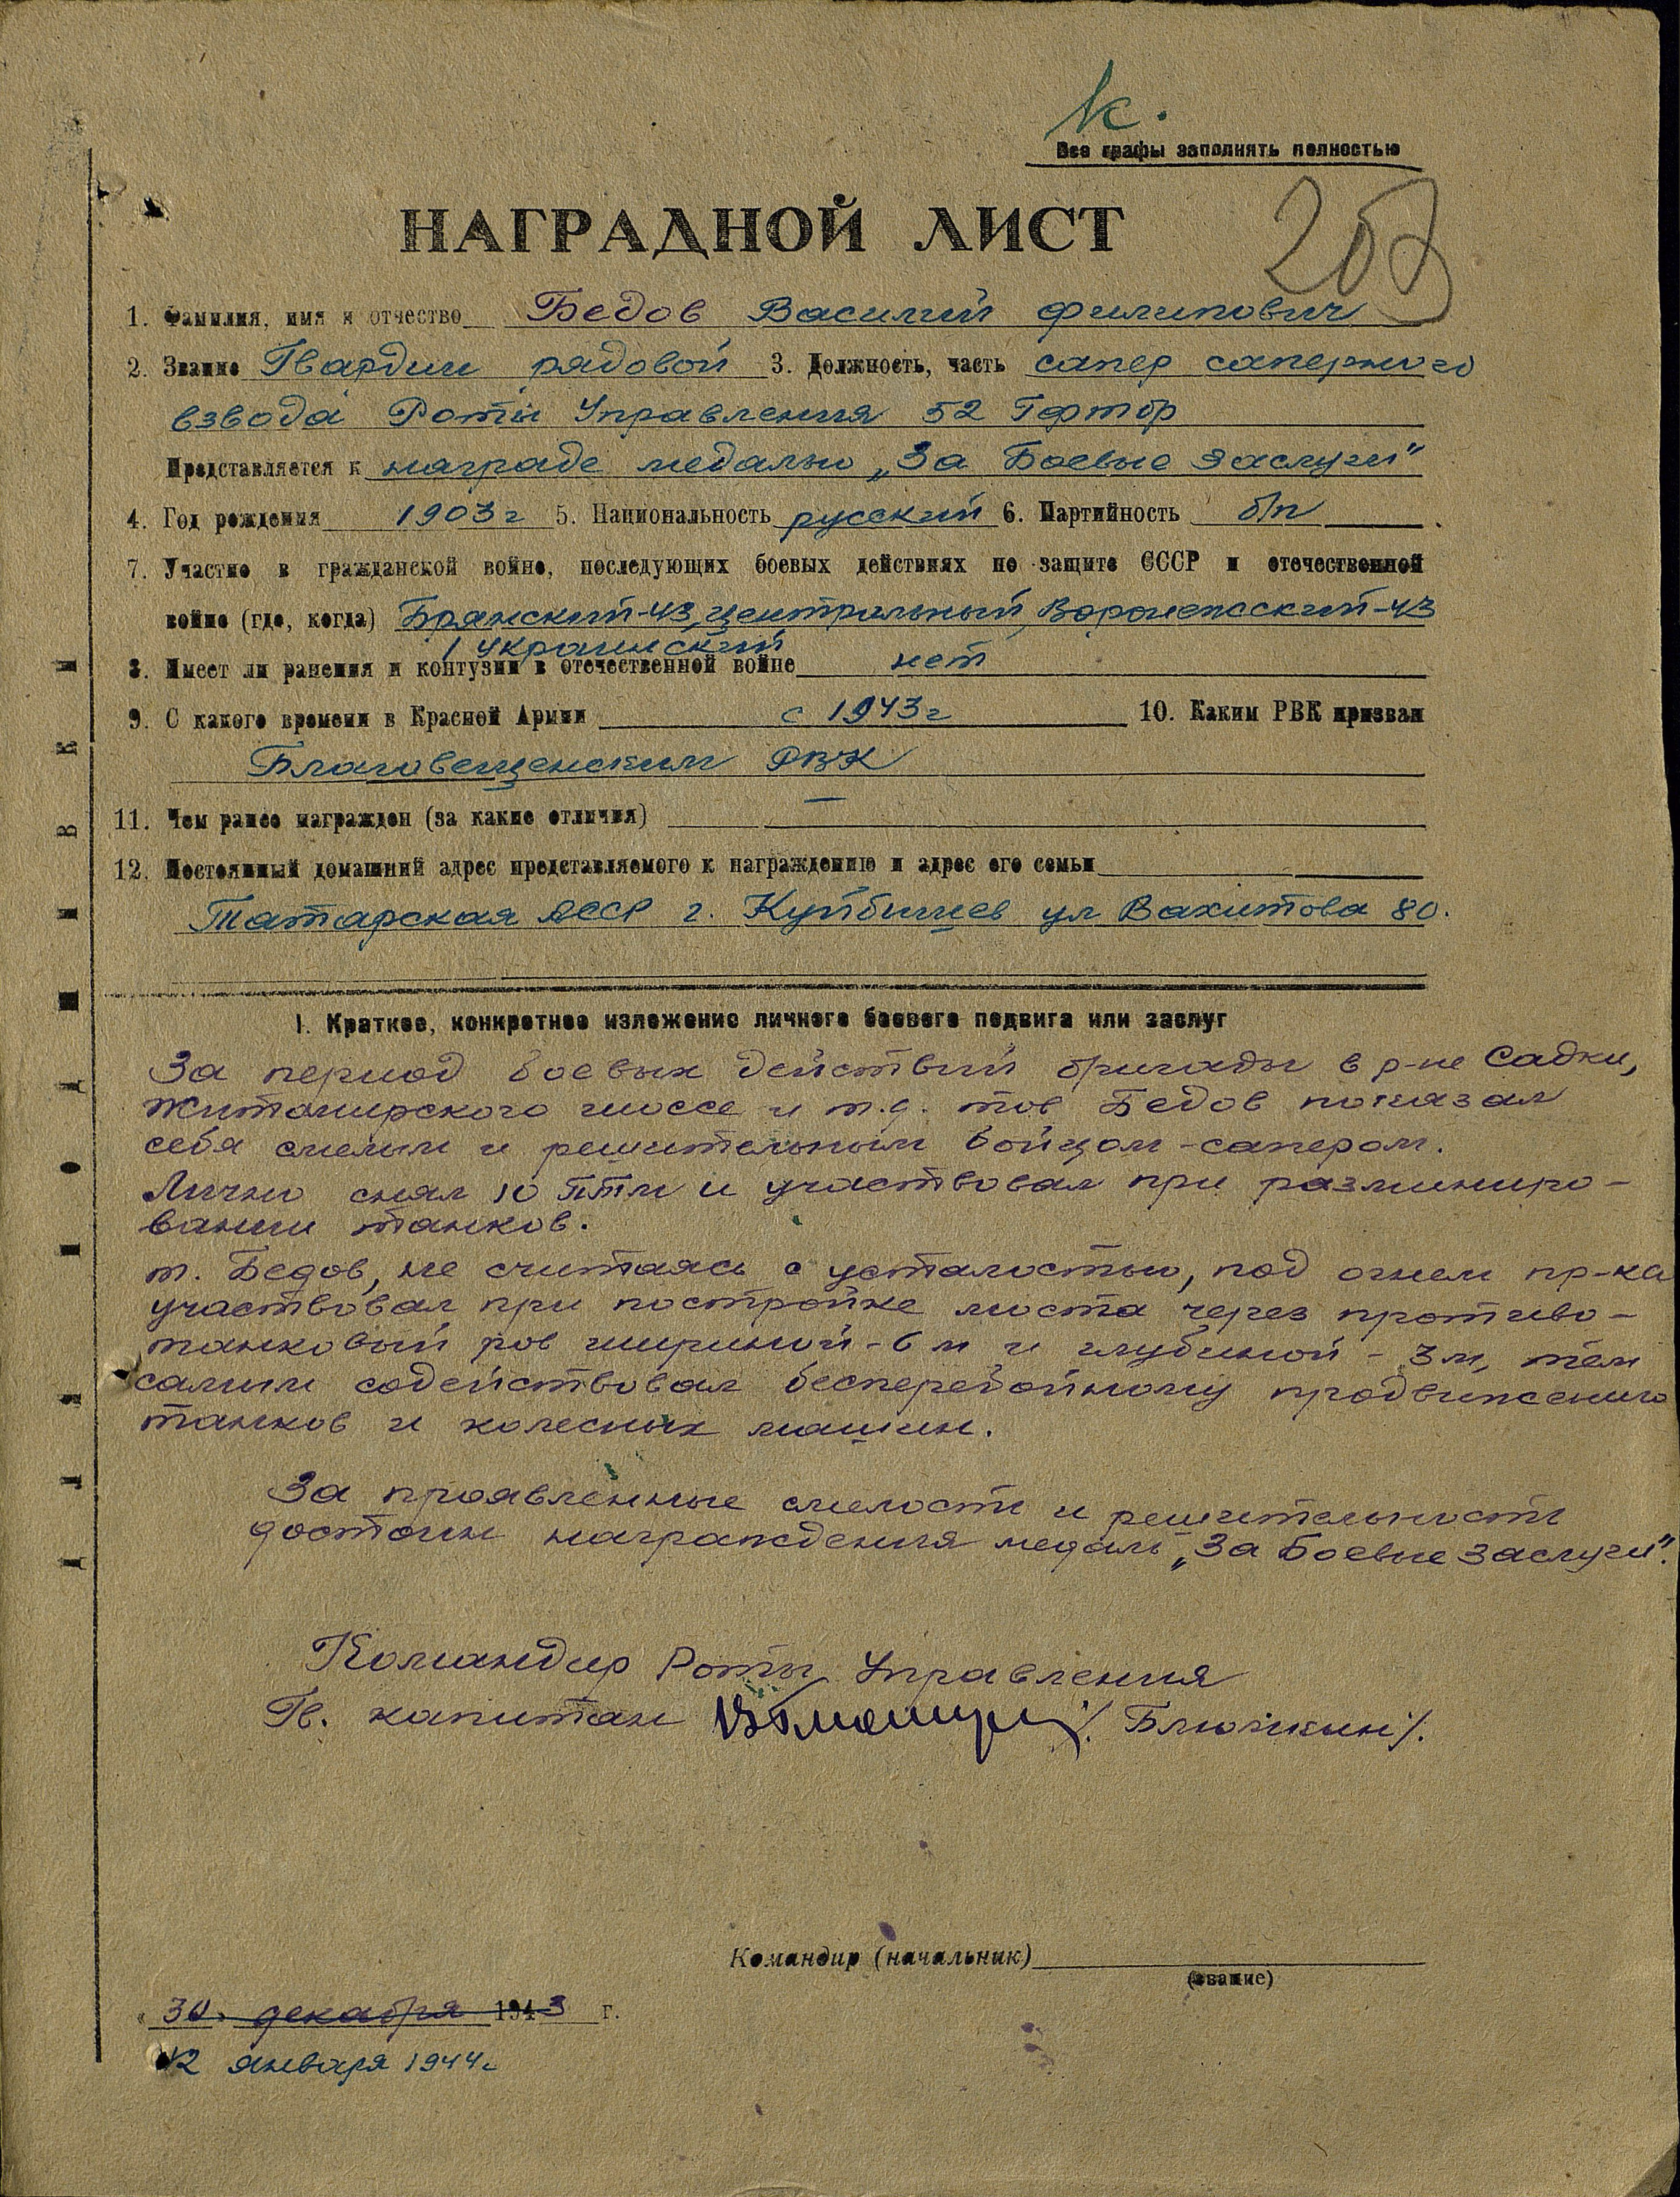 к.
Все графы заполнять полностью
НАГРАДНОЙ ЛИСТ
1. Фамилия, имя и отчество Бедов Василий Филипович
2. Звание Гвардии рядовой 3. Должность, часть сапер саперного
взвода Роты Управления 52 Гфтбр
Представляется к награде медалью „За Боевые Заслуги"
4. Год рождения 1903 г 5. Национальность русский 6. Партийность б/п
7. Участие в гражданской войне, последующих боевых действиях по защите СССР и отечественной
войне (где, когда) Брянский-43, центральный, Воронежский-43
1 Украинский
8. Имеет ли ранения и контузии в отечественной войне нет
9. С какого времени в Красной Армии с 1943 г 10. Каким РВК призван
Благовещенским РВК
11. Чем ранее награжден (за какие отличия) —
12. Постоянный домашний адрес представляемого к награждению и адрес его семьи
Татарская АССР г. Куйбышев ул Вахитова 80.
I. Краткое, конкретное изложение личного боевого подвига или заслуг
За период боевых действий бригады в р-не Садки,
Житомирского шоссе и т.д. тов Бедов показал
себя смелым и решительным бойцом-сапером.
Лично снял 10 ПТМ и участвовал при разминиро-
вании танков.
т. Бедов, не считаясь с усталостью, под огнем пр-ка
участвовал при постройке моста через противо-
танковый ров шириной-6 м и глубиной - 3 м, тем
самым содействовал бесперебойному продвижению
танков и колесных машин.
За проявленные смелости и решительности
достоин награждения медали „За Боевые Заслуги".
Командир Роты Управления
Гв. капитан /Блюмкин/.
Командир (начальник)
(звание)
„30. декабря 1943 г.
12 января 1944 г